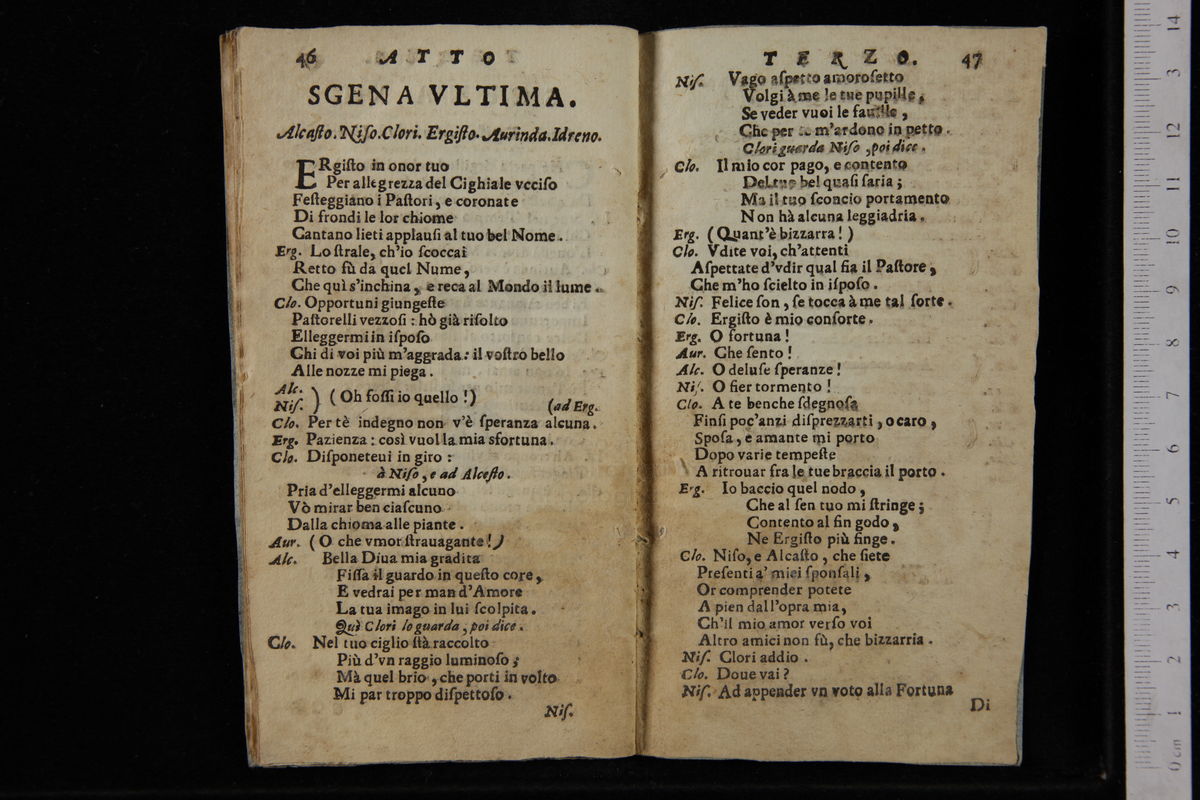 46 ATTO
SGENA VLTIMA.
Alcasto. Niso. Clori. Ergisto. Aurinda. Idreno.
ERgiſto in onor tuo
Per allegrezza del Cighiale vcciſo
Feſteggiano i Paſtori, e coronate
Di frondi le lor chiome
Cantano lieti applauſi al tuo bel Nome.
Erg. Lo ſtrale, ch'io ſcoccai
Retto fù da quel Nume,
Che quì s'inchina, e reca al Mondo il lume.
Clo. Opportuni giungeſte
Paſtorelli vezzoſi: hò già riſolto
Elleggermi in iſpoſo
Chi di voi più m'aggrada: il voſtro bello
Alle nozze mi piega.
Alc.
Niſ. ) (Oh foſſi io quello!)
(ad Erg.
Clo. Per tè indegno non v'è ſperanza alcuna.
Erg. Pazienza: così vuol la mia sfortuna.
Clo. Diſponeteui in giro:
à Niſo, e ad Alceſto.
Pria d'elleggermi alcuno
Vò mirar ben ciaſcuno
Dalla chioma alle piante.
Aur. (O che vmor ſtrauagante!)
Alc. Bella Diua mia gradita
Fiſſa il guardo in queſto core,
E vedrai per man d'Amore
La tua imago in lui ſcolpita.
Quì Clori lo guarda, poi dice.
Clo. Nel tuo ciglio ſtà raccolto
Più d'vn raggio luminoſo;
Mà quel brio, che porti in volto
Mi par troppo diſpettoſo.
Niſ.
TERZO. 47
Niſ. Vago aſpetto amoroſetto
Volgi à me le tue pupille,
Se veder vuoi le fauille,
Che per te m'ardono in petto.
Clori guarda Niſo, poi dice.
Clo. Il mio cor pago, e contento
Del tuo bel quaſi ſaria;
Ma il tuo ſconcio portamento
Non hà alcuna leggiadria.
Erg. (Quant'è bizzarra!)
Clo. Vdite voi, ch'attenti
Aſpettate d'vdir qual ſia il Paſtore,
Che m'ho ſcielto in iſpoſo.
Niſ. Felice ſon, ſe tocca à me tal ſorte.
Clo. Ergiſto è mio conſorte.
Erg. O fortuna!
Aur. Che ſento!
Alc. O deluſe ſperanze!
Niſ. O fier tormento!
Clo. A te benche ſdegnoſa
Finſi poc'anzi diſprezzarti, o caro,
Spoſa, e amante mi porto
Dopo varie tempeſte
A ritrouar fra le tue braccia il porto.
Erg. Io baccio quel nodo,
Che al ſen tuo mi ſtringe;
Contento al fin godo,
Ne Ergiſto più finge.
Clo. Niſo, e Alcaſto, che ſiete
Preſenti a' miei ſponſali,
Or comprender potete
A pien dall'opra mia,
Ch'il mio amor verſo voi
Altro amici non fù, che bizzarria.
Niſ. Clori addio.
Clo. Doue vai?
Niſ. Ad appender vn voto alla Fortuna
Di
0 cm 1 2 3 4 5 6 7 8 9 10 11 12 13 14